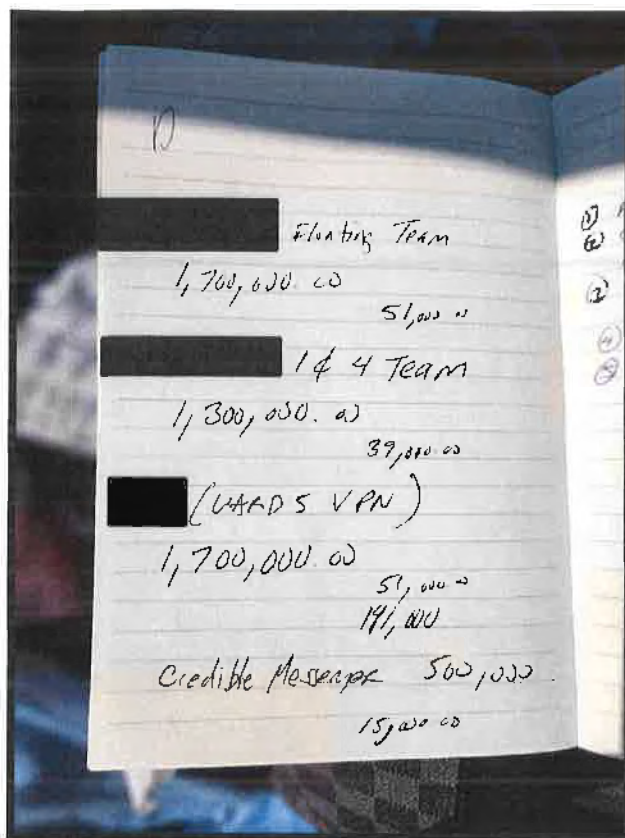 Floating Team
1,700,000.00
51,000 00
1 & 4 Team
1,300,000.00
39,000.00
(WARD 5 VPN)
1,700,000.00
51,000 00
141,000
Credible Messenger 500,000.
15,000 00
(1)
(2)
(3)
(4)
(5)